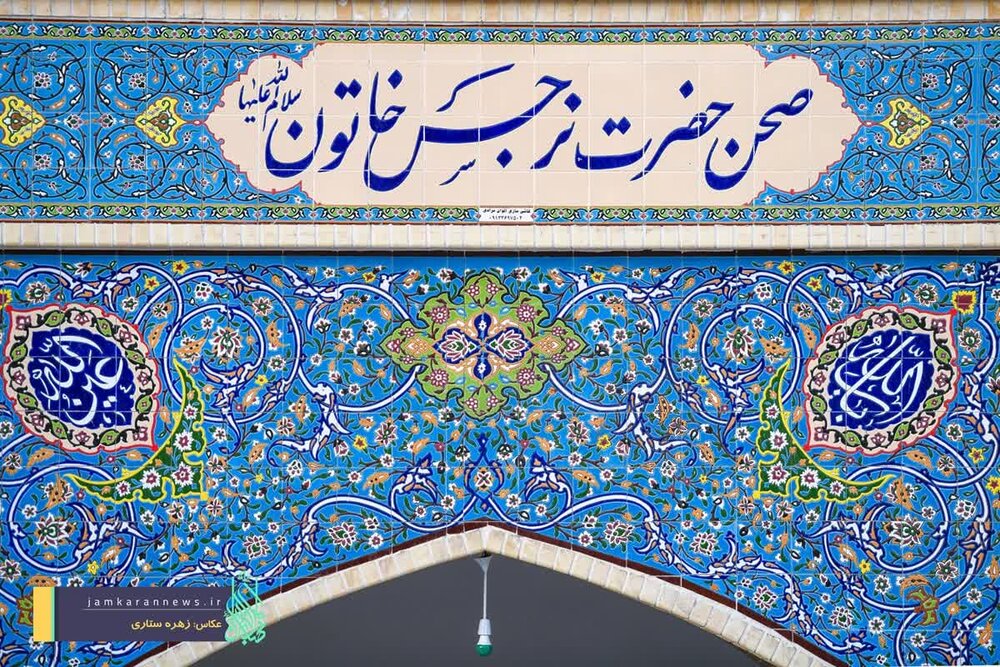 صحن حضرت نرجس خاتون سلام الله علیها
jamkarannews.ir
عکاس: زهره ستاری